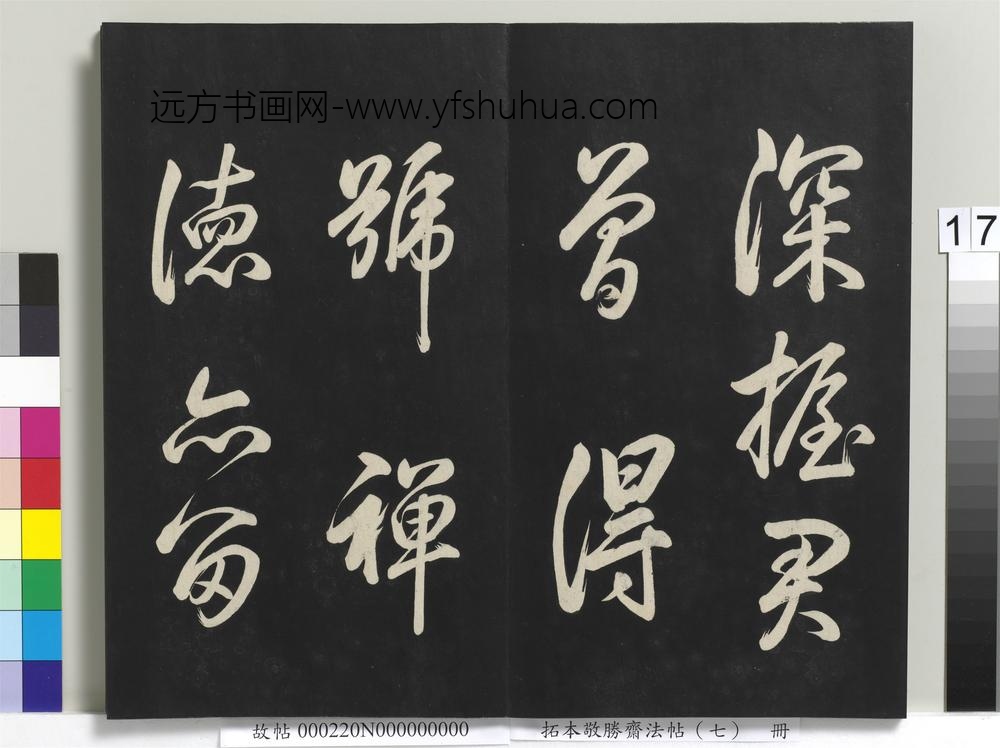 远方书画网-www.yfshuhua.com
深握灵
曾得
號禅
德亦留
17
故帖 000220N000000000
拓本敬勝齋法帖(七) 冊